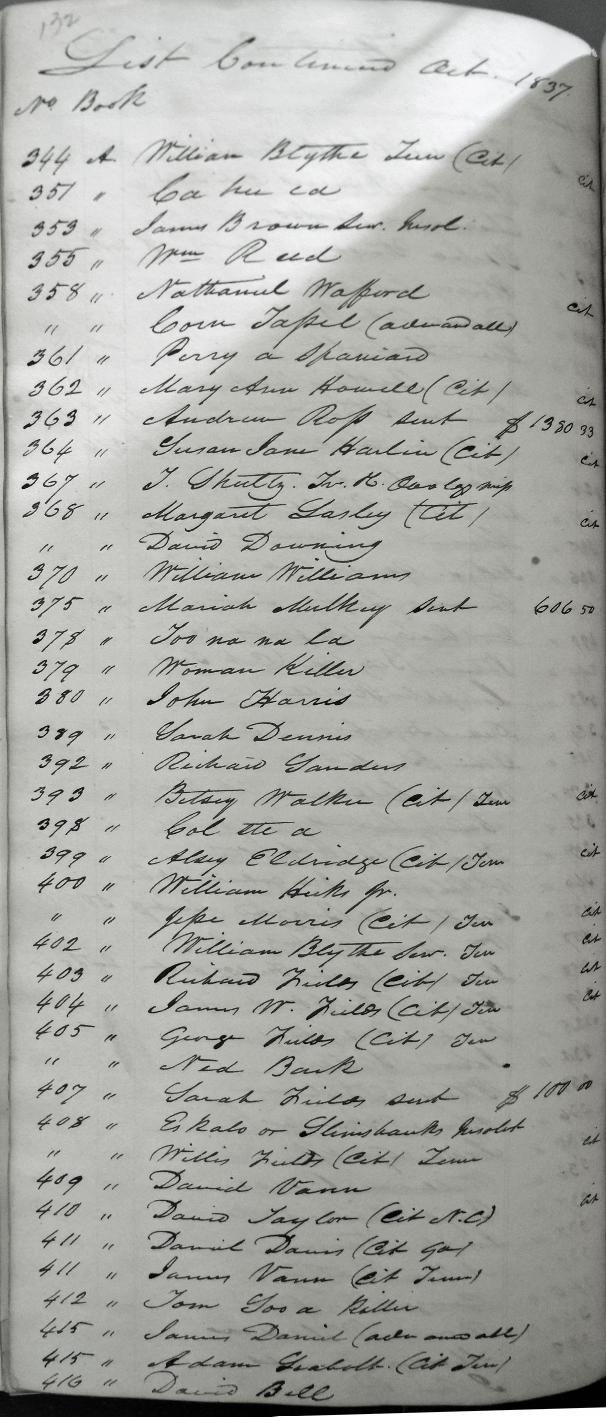 132
List Continued Oct. 1837.
No. Book
344 A William Blythe Tenn (Cit)
351 " Ca hu ca
353 " James Brown Sen. Insol.
355 " Wm Reed
358 " Nathaniel Wafford
" " Corn Tassel
361 " Perry a Spaniard
362 " Mary Ann Howell (Cit)
363 " Andrew Ross sent $1380 33
364 " Susan Jane Harlin (Cit)
367 " T. Shutty.
368 " Margaret Lasley (Cit)
" " David Downing
370 " William Williams
375 " Mariah Mulkey sent 606 50
378 " Too na na la
379 " Woman Killer
380 " John Harris
389 " Sarah Dennis
392 " Richard Sanders
393 " Betsey Walker (Cit) Tenn
398 " Col tte a
399 " Alsey Eldridge (Cit) Tenn
400 " William Hicks Jr.
" " Jesse Morris (Cit) Ten
402 " William Blythe Sen. Ten
403 " Richard Fields (Cit) Ten
404 " James W. Fields (Cit) Ten
405 " George Fields (Cit) Ten
" " Ned Bark
407 " Sarah Fields sent $100 00
408 " or Slimshanks Insolt
" " Willis Fields (Cit) Tenn
409 " David Vann
410 " David Taylor (Cit N.C)
411 " Daniel Davis (Cit Ga)
411 " James Vann (Cit Tenn)
412 " Tom Goo a Killer
415 " James Daniel
415 " Adam Seabolt. (Cit Ten)
416 " David Bell